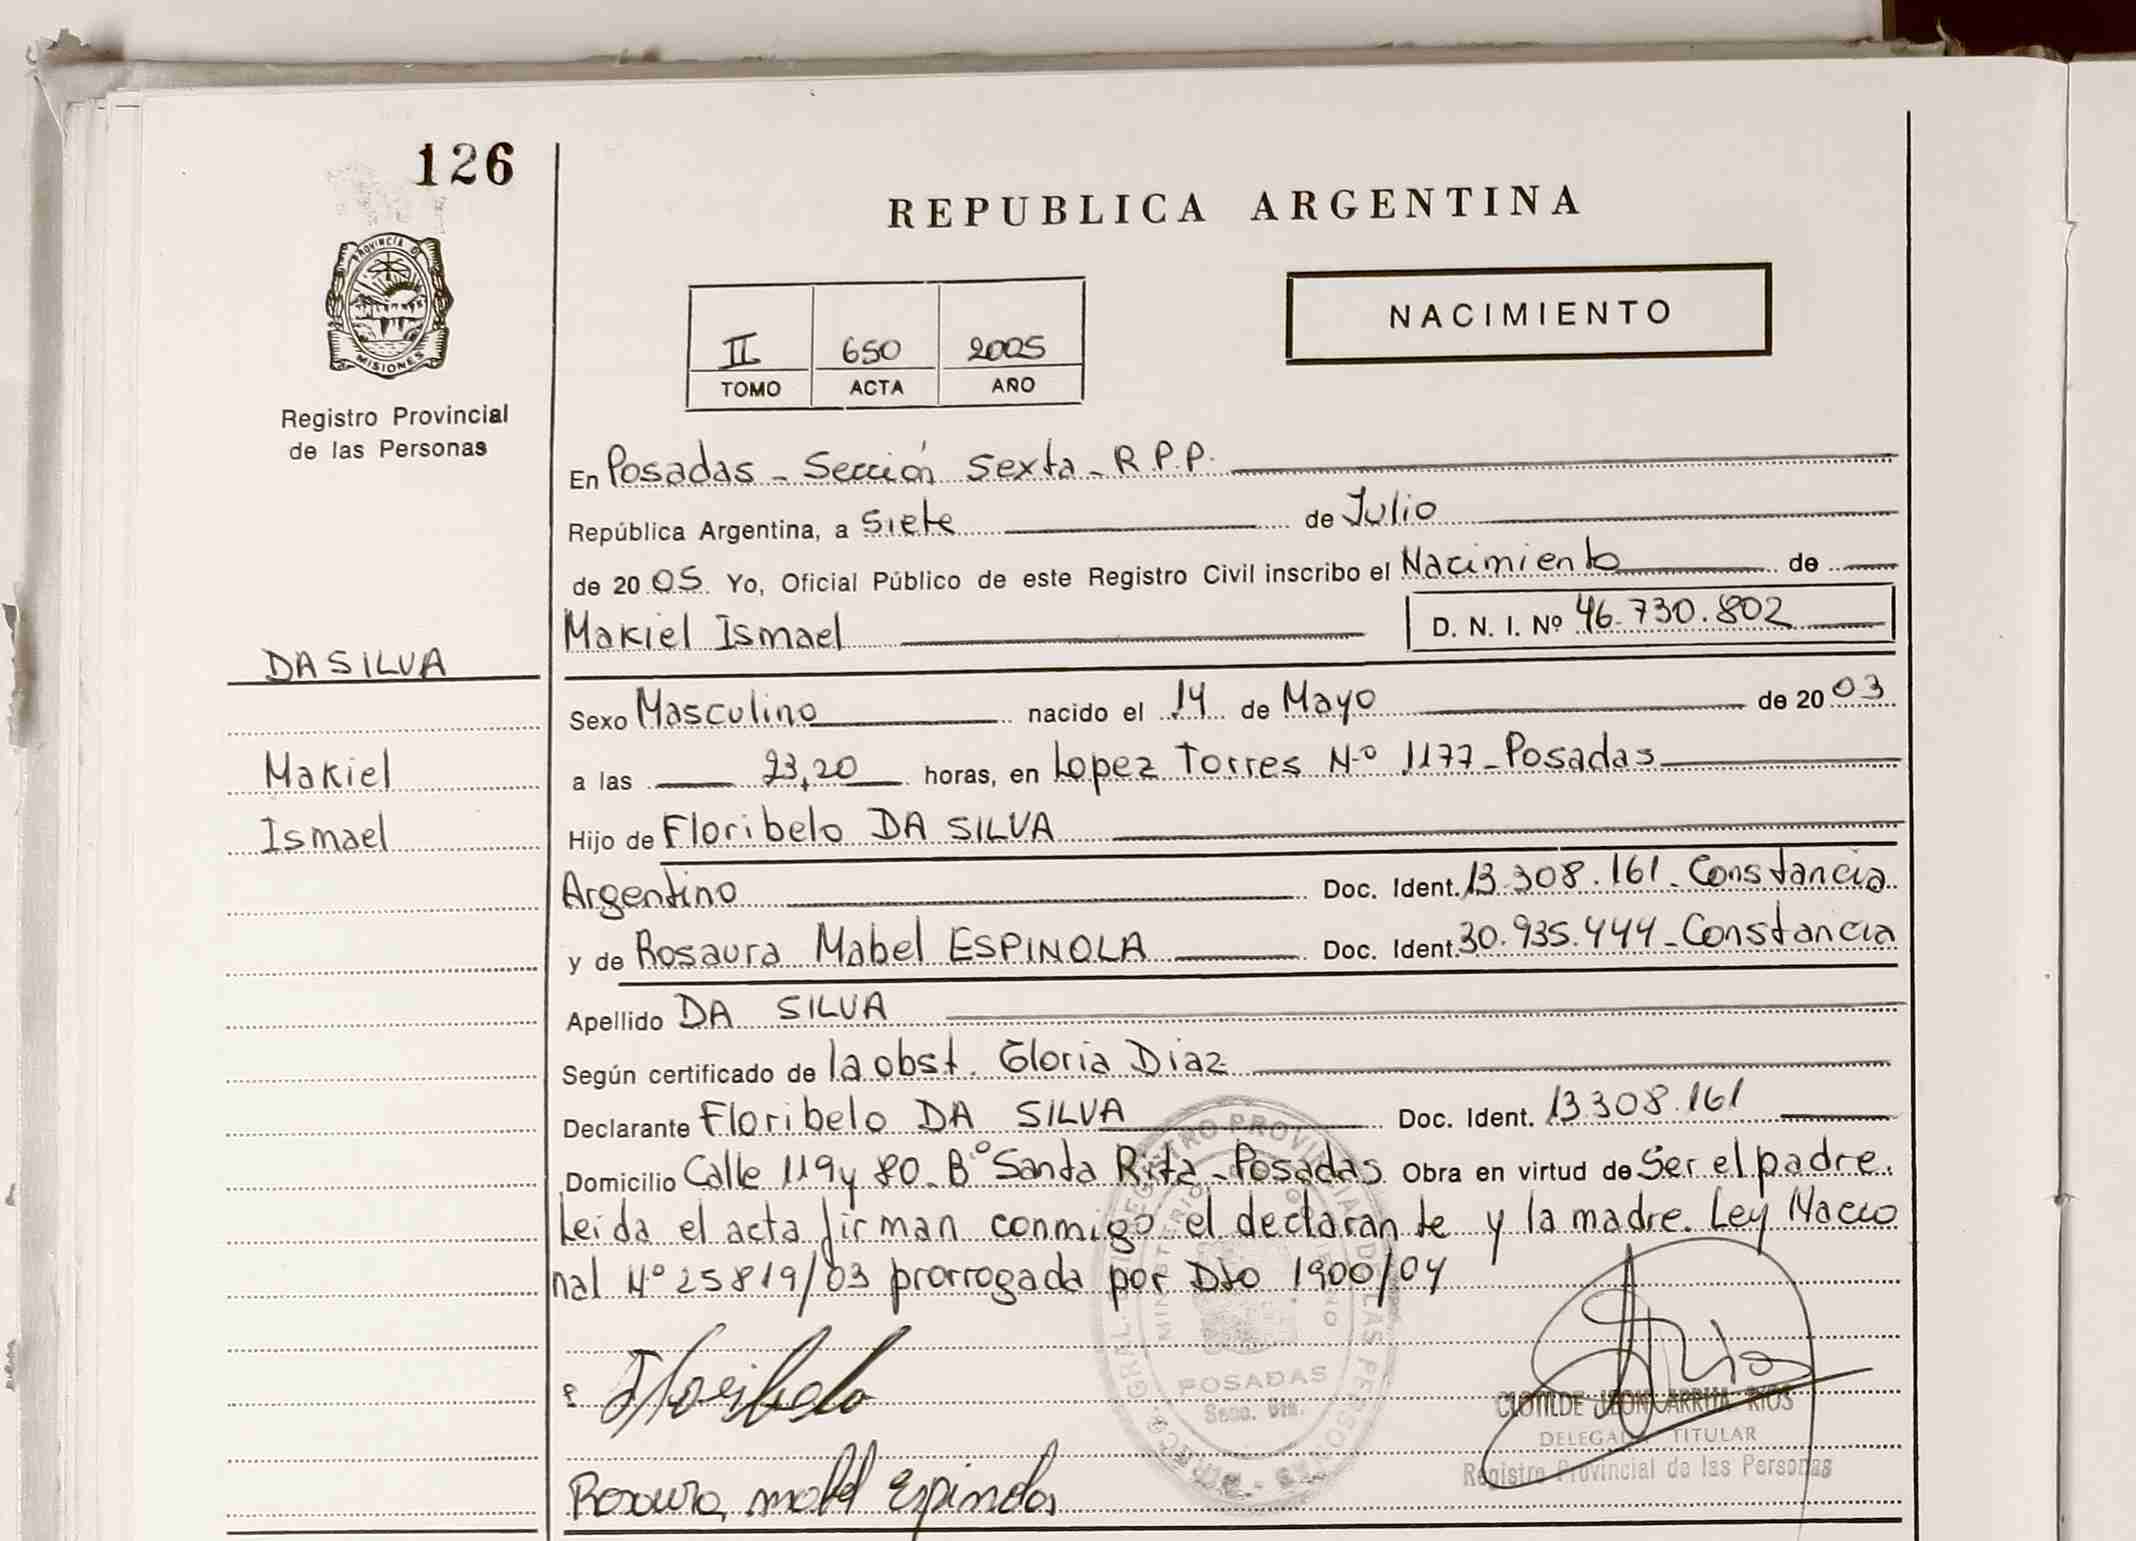 126
REPUBLICA ARGENTINA
PROVINCIA D MISIONES
Registro Provincial
de las Personas
II 650 2005
TOMO ACTA AÑO
NACIMIENTO
En Posadas - Sección Sexta - R.P.P.
República Argentina, a Siete de Julio
de 20 05 Yo, Oficial Público de este Registro Civil inscribo el Nacimiento de
Makiel Ismael D. N. I. Nº 46.730.802
DA SILVA
Sexo Masculino nacido el 14 de Mayo de 20 03
Makiel
a las 23,20 horas, en Lopez Torres Nº 1177 - Posadas
Ismael
Hijo de Floribelo DA SILVA
Argentino Doc. Ident. 13.308.161 - Constancia
y de Rosaura Mabel ESPINOLA Doc. Ident. 30.935.444 - Constancia
Apellido DA SILVA
Según certificado de la obst. Gloria Diaz
Declarante Floribelo DA SILVA Doc. Ident. 13.308.161
Domicilio Calle 119 y 80 - Bº Santa Rita - Posadas Obra en virtud de Ser el padre.
Leída el acta firman conmigo el declarante y la madre. Ley Nacio
nal Nº 25819/03 prorrogada por Dto 1900/04
Floribelo
POSADAS
CLOTILDE RIOS
DELEGADA TITULAR
Registro Provincial de las Personas
Rosaura mabel Espindola